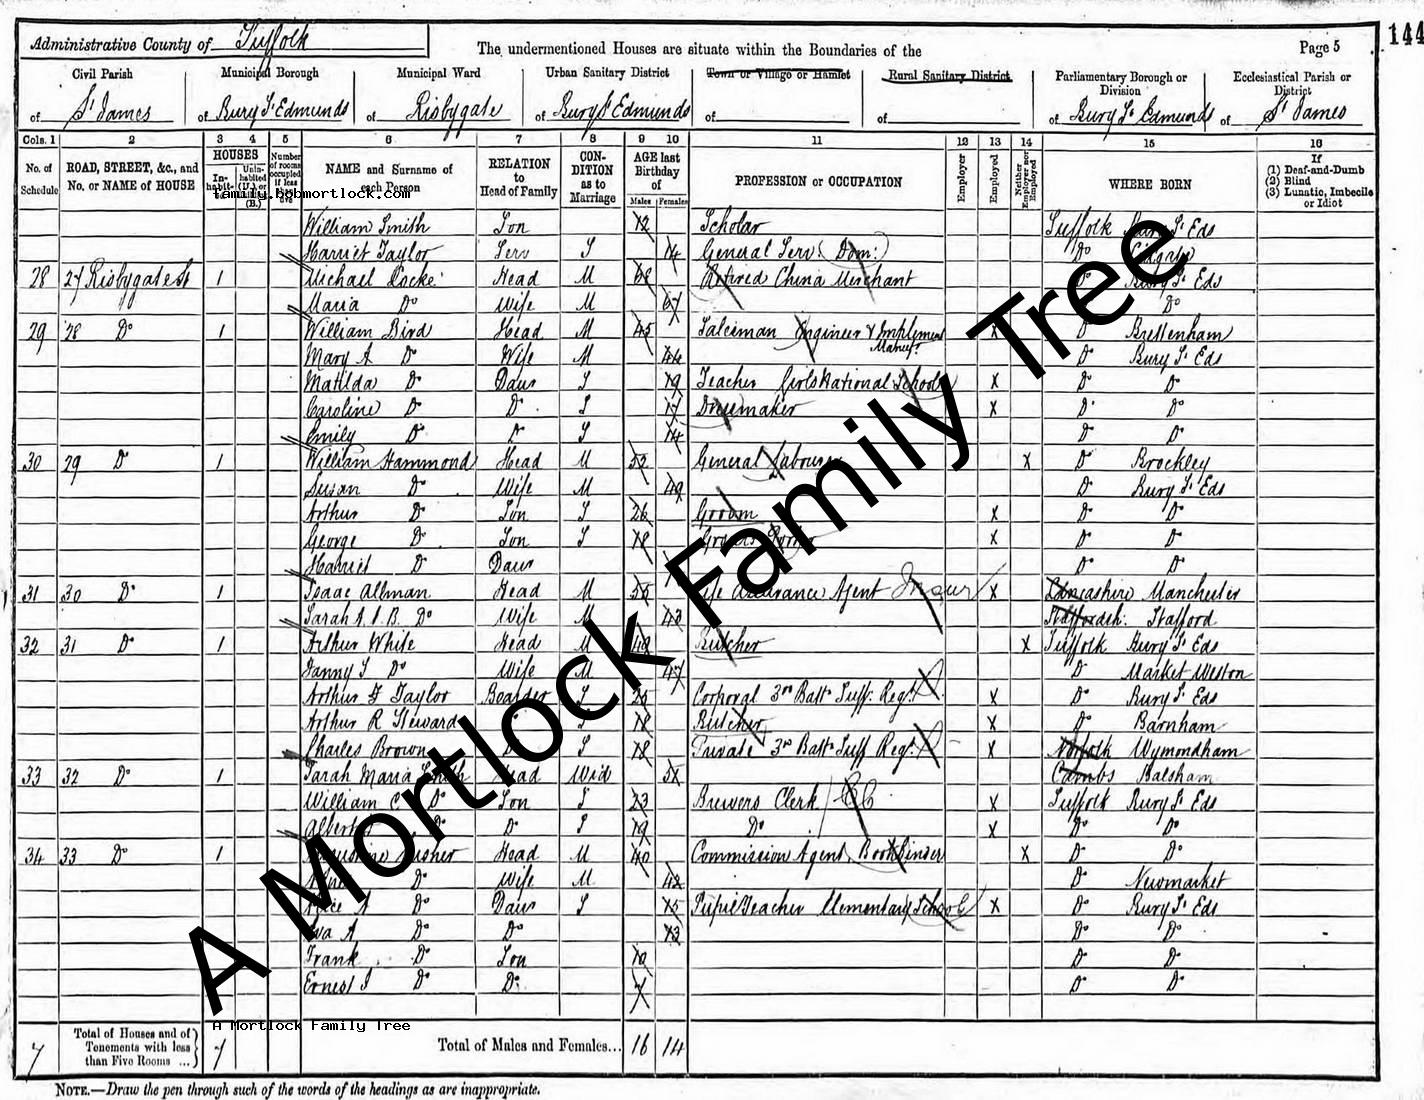 144
Administrative County of Suffolk
The undermentioned Houses are situate within the Boundaries of the
Page 5
Civil Parish Municipal Borough Municipal Ward Urban Sanitary District Town or Village or Hamlet Rural Sanitary District Parliamentary Borough or Division Ecclesiastical Parish or District
of St James of Bury St Edmunds of Risbygate of Bury St Edmunds of of of Bury St Edmunds of St James
Cols. 1 2 3 4 5 6 7 8 9 10 11 12 13 14 15 16
No. of Schedule ROAD, STREET, &c., and No. or NAME of HOUSE HOUSES Inhabited Uninhabited (U.) or Building (B.) Number of rooms occupied if less than five NAME and Surname of each Person RELATION to Head of Family CONDITION as to Marriage AGE last Birthday of Males Females PROFESSION or OCCUPATION Employer Employed Neither Employer nor Employed WHERE BORN If (1) Deaf-and-Dumb (2) Blind (3) Lunatic, Imbecile or Idiot
family.bobmortlock.com
William Smith Son 12 Scholar Suffolk Bury St Eds
Harriet Taylor Serv S 14 General Serv (Dom:) Do
28 27 Risbygate St 1 Michael Locke Head M 68 Retired China Merchant Do Bury St Eds
Maria Do Wife M 67 Do
29 28 Do 1 William Bird Head M 45 Salesman Engineer & Implement Manufr X Do Brettenham
Mary A Do Wife M 44 Do Bury St Eds
Matilda Do Daur S 19 Teacher Girls National School X Do Do
Caroline Do Do S 17 Dressmaker X Do Do
Emily Do Do S 14 Do Do
30 29 Do 1 William Hammond Head M 52 General Labourer X Do Brockley
Susan Do Wife M 49 Do Bury St Eds
Arthur Do Son S 26 Groom X Do Do
George Do Son S 18 Grocers Porter X Do Do
Harriet Do Daur Do Do
31 30 Do 1 Isaac Allman Head M 55 Life Assurance Agent Insur X Lancashire Manchester
Sarah A. B. Do Wife M 43 Staffordsh: Stafford
32 31 Do 1 Arthur White Head M 49 Butcher X Suffolk Bury St Eds
Fanny S Do Wife M 47 Do Market Weston
Arthur F Taylor Boarder S 25 Corporal 3rd Batt Suff: Regt X Do Bury St Eds
Arthur R Steward S 18 Butcher X Do Barnham
Charles Brown Do S 18 Private 3rd Batt Suff Regt X Norfolk Wymondham
33 32 Do 1 Sarah Maria Smith Head Wid 51 Cambs Balsham
William C Do Son S 23 Brewers Clerk CC X Suffolk Bury St Eds
Albert Do Do S 19 Do X Do Do
34 33 Do 1 Fisher Head M 40 Commission Agent, Bookbinder X Do Do
Do Wife M 42 Do Newmarket
Alice A Do Daur S 15 Pupil Teacher Elementary School X Do Bury St Eds
Eva A Do Do 13 Do Do
Frank Do Son 10 Do Do
Ernest J Do Do 7 Do Do
A Mortlock Family Tree
A Mortlock Family Tree
7 Total of Houses and of Tenements with less than Five Rooms ... 7 Total of Males and Females... 16 14
NOTE.—Draw the pen through such of the words of the headings as are inappropriate.